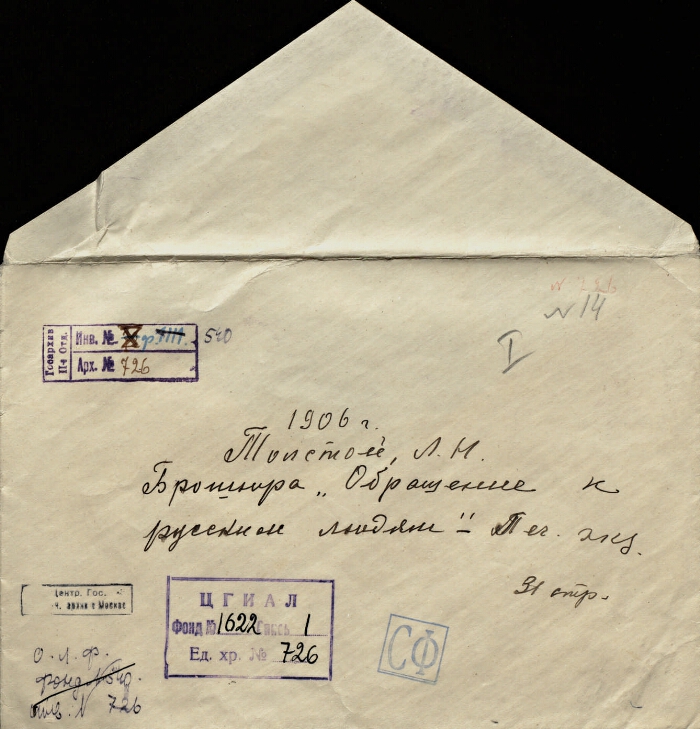 № 726
№ 14
I
Госархив
II-е Отд.
Инв. № ф. VIII. 540
Арх. № 726
1906 г.
Толстой, Л.Н.
Брошюра „Обращение к
русским людям" – Печ. экз.
31 стр.
Центр. Гос.
архив г. Москве
ЦГИАЛ
Фонд № 1622 Опись 1
Ед. хр. № 726
СФ
О. Л. Ф.
фонд №
инв. № 726